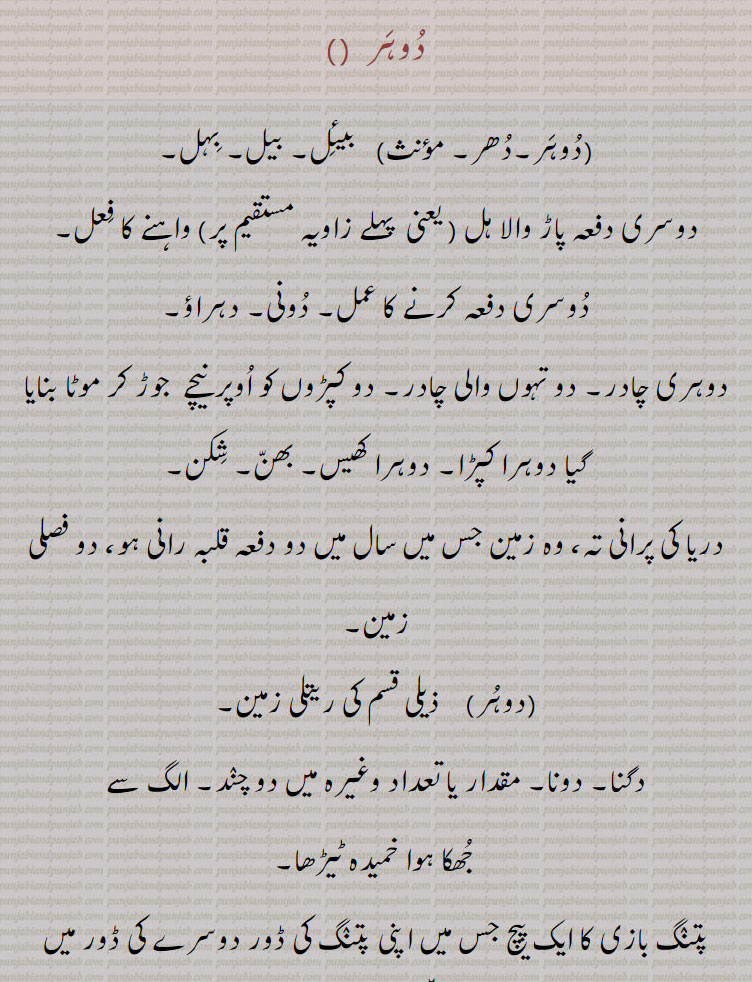 دُوہَر ()
(دُوہَر۔دُھر۔ مؤنث) بیئِل۔ بیل۔ بِہل۔
دوسری دفعہ پاڑ والا ہل (یعنی پہلے زاویہ مستقیم پر) واہنے کا فِعل۔
دُوسری دفعہ کرنے کا عمل۔ دُونی۔ دہراؤ۔
دوہری چادر۔ دو تہوں والی چادر۔ دو کپڑوں کو اُوپر نیچے جوڑ کر موٹا بنایا
گیا دوہرا کپڑا۔ دوہرا کھیس۔ بھنّ۔ شِکن۔
دریا کی پرانی تہ، وہ زمین جس میں سال میں دو دفعہ قلبہ رانی ہو، دو فصلی
زمین۔
(دوہُر) ذیلی قسم کی ریتلی زمین۔
دگنا۔ دونا۔ مقدار یا تعداد وغیرہ میں دو چند۔ الگ سے
جُھکا ہوا خمیدہ ٹیڑھا۔
پتنگ بازی کا ایک پیچ جس میں اپنی پتنگ کی ڈور دوسرے کی ڈور میں